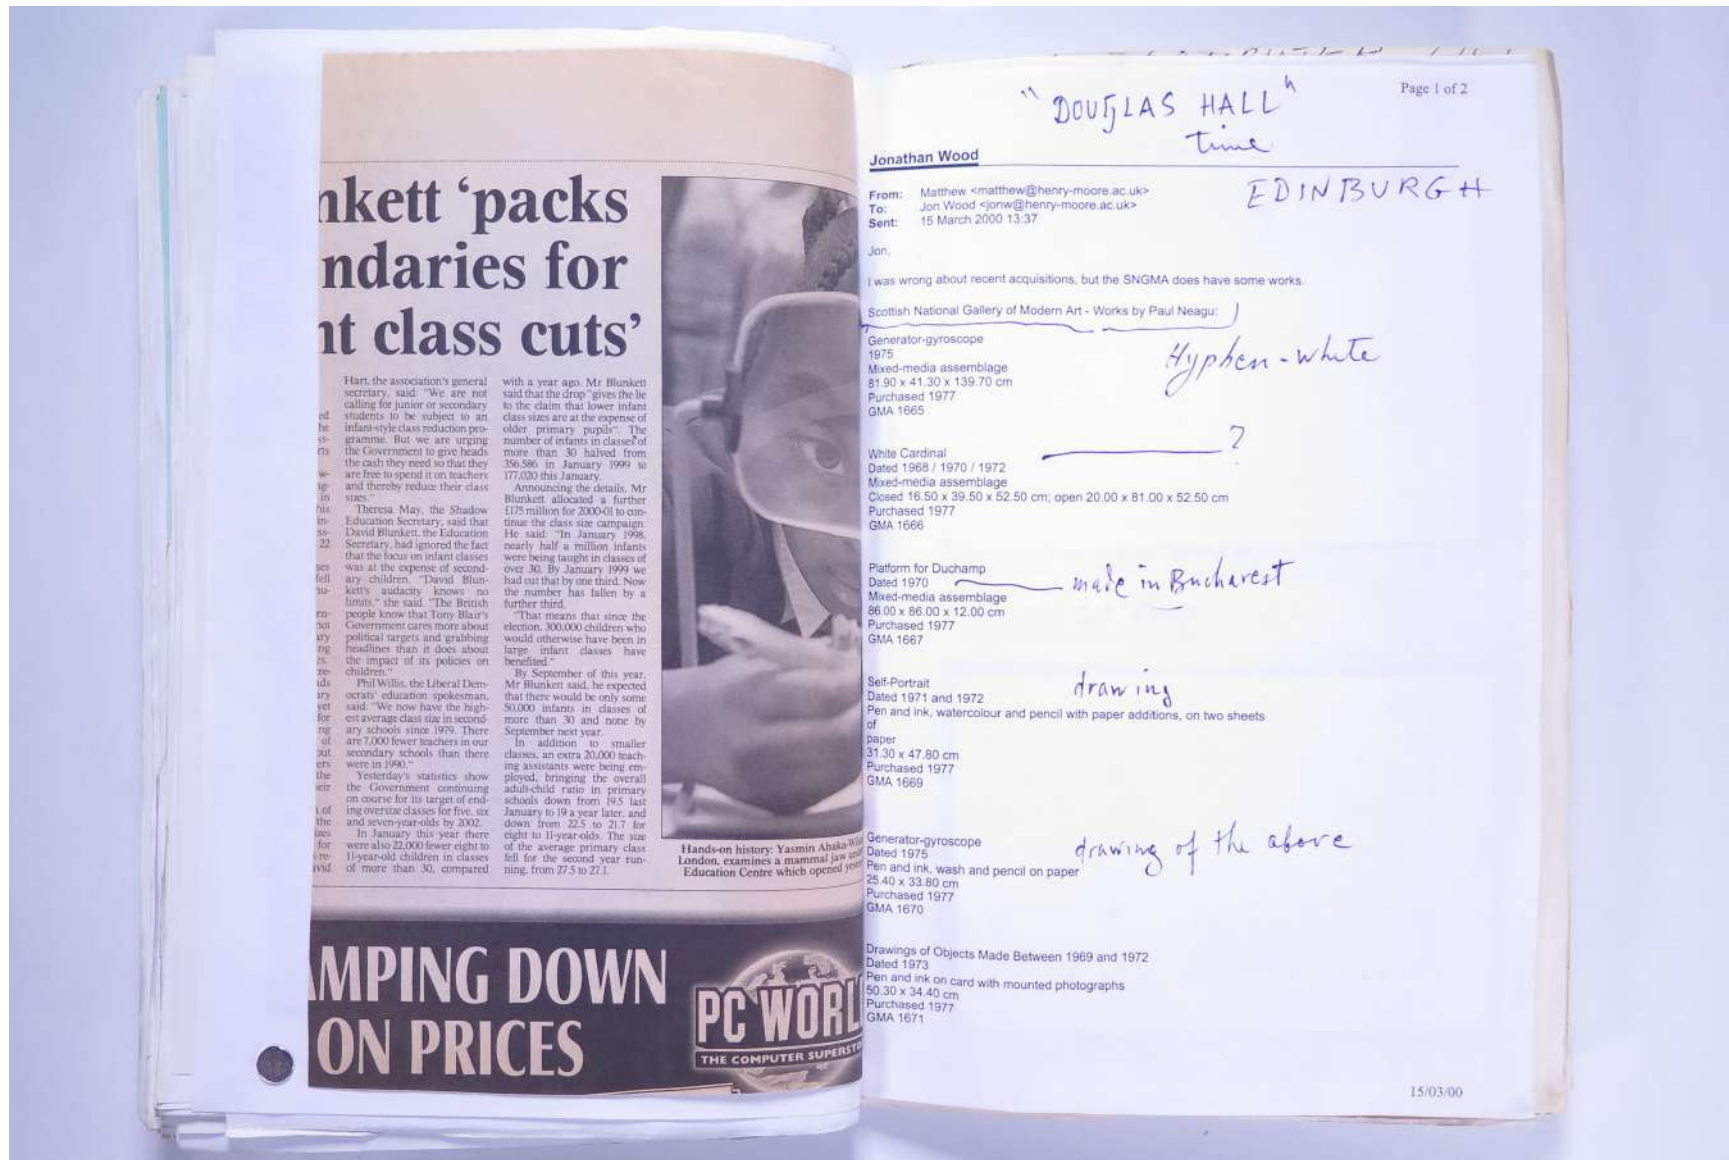 nkett ‘packs
ndaries for
nt class cuts’
Hart, the association's general
secretary, said: "We are not
calling for junior or secondary
students to be subject to an
infant-style class reduction pro-
gramme. But we are urging
the Government to give heads
the cash they need so that they
are free to spend it on teachers
and thereby reduce their class
sizes."
Theresa May, the Shadow
Education Secretary, said that
David Blunkett, the Education
Secretary, had ignored the fact
that the focus on infant classes
was at the expense of second-
ary children. "David Blun-
kett's audacity knows no
limits," she said. "The British
people know that Tony Blair's
Government cares more about
political targets and grabbing
headlines than it does about
the impact of its policies on
children."
Phil Willis, the Liberal Dem-
ocrats' education spokesman,
said: "We now have the high-
est average class size in second-
ary schools since 1979. There
are 7,000 fewer teachers in our
secondary schools than there
were in 1990."
Yesterday's statistics show
the Government continuing
on course for its target of end-
ing oversize classes for five, six
and seven-year-olds by 2002.
In January this year there
were also 22,000 fewer eight to
11-year-old children in classes
of more than 30, compared
with a year ago. Mr Blunkett
said that the drop "gives the lie
to the claim that lower infant
class sizes are at the expense of
older primary pupils". The
number of infants in classes of
more than 30 halved from
356,586 in January 1999 to
177,020 this January.
Announcing the details, Mr
Blunkett allocated a further
£175 million for 2000-01 to con-
tinue the class size campaign.
He said: "In January 1998,
nearly half a million infants
were being taught in classes of
over 30. By January 1999 we
had cut that by one third. Now
the number has fallen by a
further third.
"That means that since the
election, 300,000 children who
would otherwise have been in
large infant classes have
benefited."
By September of this year,
Mr Blunkett said, he expected
that there would be only some
50,000 infants in classes of
more than 30 and none by
September next year.
In addition to smaller
classes, an extra 20,000 teach-
ing assistants were being em-
ployed, bringing the overall
adult-child ratio in primary
schools down from 19.5 last
January to 19 a year later, and
down from 22.5 to 21.7 for
eight to 11-year-olds. The size
of the average primary class
fell for the second year run-
ning, from 27.5 to 27.1.
Hands-on history: Yasmin Abaka-
London, examines a mammal jaw
Education Centre which opened
AMPING DOWN
ON PRICES
PC WORL
THE COMPUTER SUPERSTO
Page 1 of 2
"DOUGLAS HALL"
time
Jonathan Wood
EDINBURGH
From: Matthew <matthew@henry-moore.ac.uk>
To: Jon Wood <jonw@henry-moore.ac.uk>
Sent: 15 March 2000 13:37
Jon,
I was wrong about recent acquisitions, but the SNGMA does have some works.
Scottish National Gallery of Modern Art - Works by Paul Neagu:
Generator-gyroscope
Hyphen-white
1975
Mixed-media assemblage
81.90 x 41.30 x 139.70 cm
Purchased 1977
GMA 1665
White Cardinal ?
Dated 1968 / 1970 / 1972
Mixed-media assemblage
Closed 16.50 x 39.50 x 52.50 cm; open 20.00 x 81.00 x 52.50 cm
Purchased 1977
GMA 1666
Platform for Duchamp
Dated 1970 made in Bucharest
Mixed-media assemblage
86.00 x 86.00 x 12.00 cm
Purchased 1977
GMA 1667
Self-Portrait drawing
Dated 1971 and 1972
Pen and ink, watercolour and pencil with paper additions, on two sheets
of
paper
31.30 x 47.80 cm
Purchased 1977
GMA 1669
Generator-gyroscope drawing of the above
Dated 1975
Pen and ink, wash and pencil on paper
25.40 x 33.80 cm
Purchased 1977
GMA 1670
Drawings of Objects Made Between 1969 and 1972
Dated 1973
Pen and ink on card with mounted photographs
50.30 x 34.40 cm
Purchased 1977
GMA 1671
15/03/00